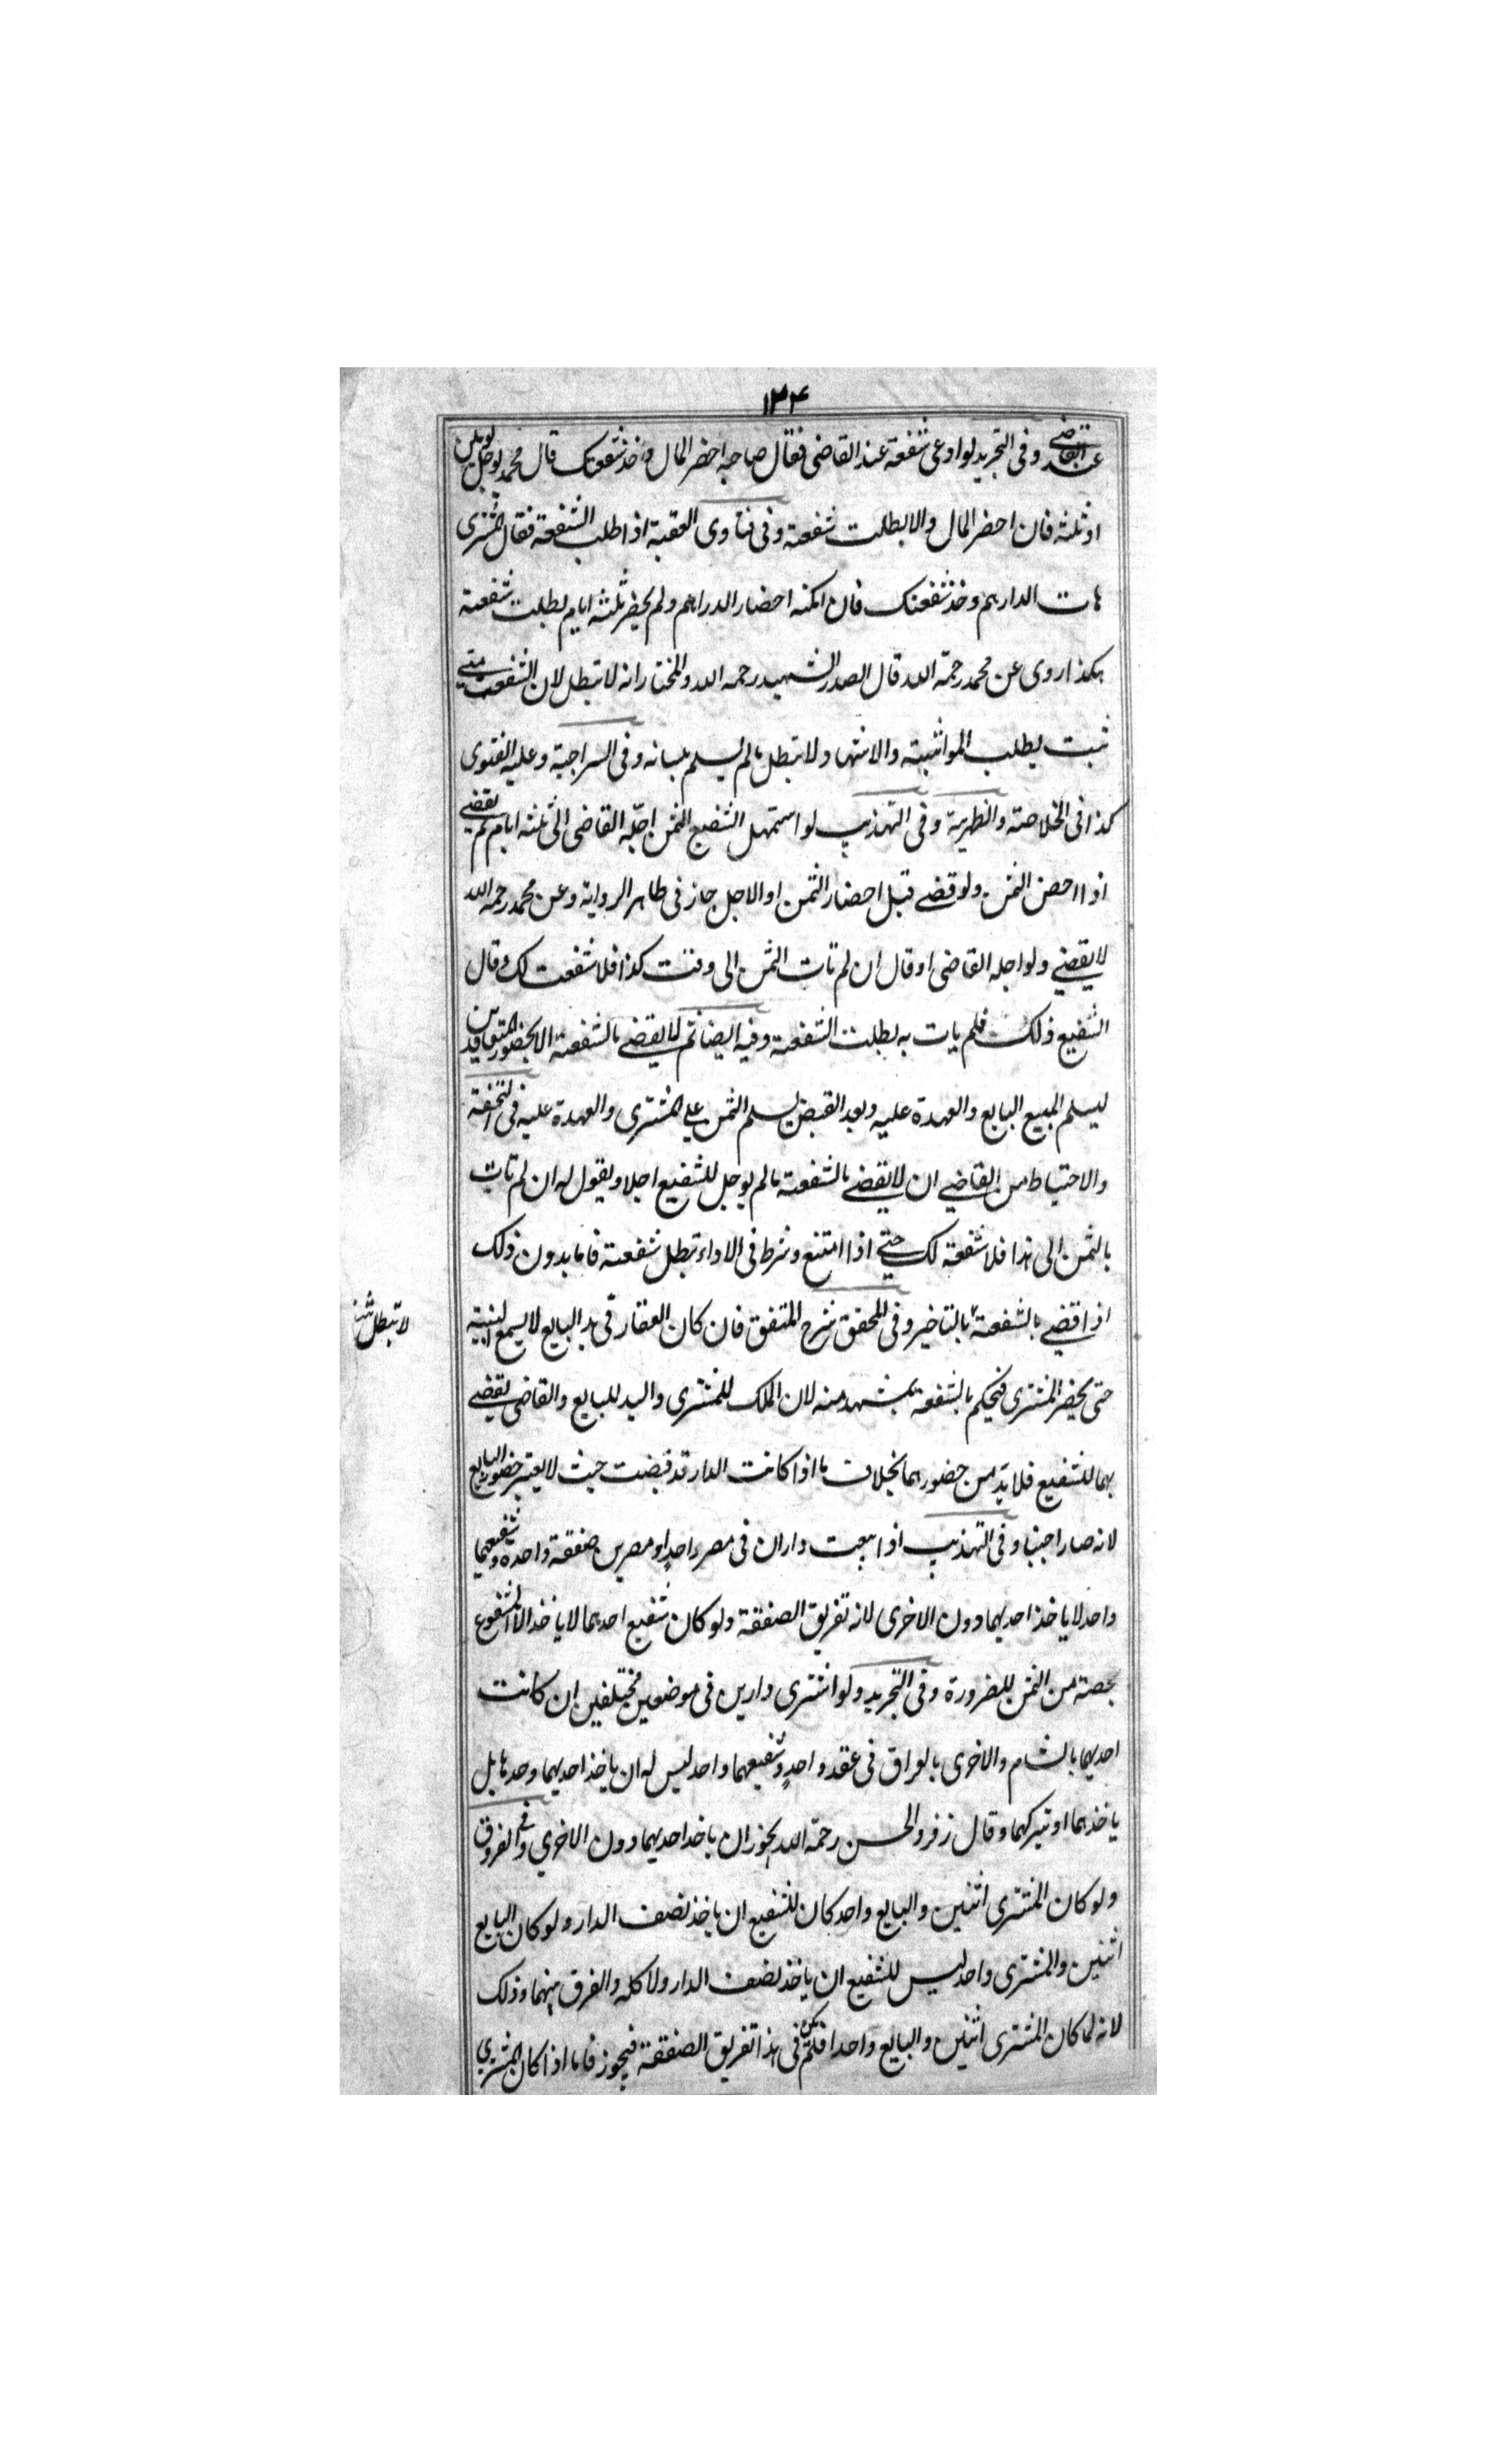 ١٣٤
عند القاضي وفى التجريد لو ادعى شفعة عند القاضى فقال صاحبه احضر المال وخذ شفعتك قال محمد يوجل يومين
او ثلثه فان احضر المال والا بطلت شفعته وفى فتاوى العقبة اذا طلب الشفعة فقال المشترى
هات الدارهم وخذ شفعتك فان امكنه احضار الدراهم ولم يحضر ثلثه ايام بطلت شفعته
هكذا روى عن محمد رحمة الله قال الصدر الشهيد رحمه الله والمختار انه لا تبطل لان الشفعة متى
ثبت بطلب المواثبته والاشهاد لا تبطل مالم يسلم بلسانه وفى السراجية وعليه الفتوى
كذا فى الخلاصته والظهيرية وفى التهذيب لو استمهل الشفيع الثمن اجله القاضى الى ثلثه ايام ثم يقضى
اذا احضر الثمن ولو قضى قبل احضار الثمن او الاجل جاز فى ظاهر الرواية وعن محمد رحمه الله
لا يقضى ولو اجله القاضى او قال ان لم تات الثمن الى وقت كذا فلا شفعت لك وقال
الشفيع ذلك فلم يات به بطلت الشفعة وفيه ايضا ثم لا يقضى بالشفعة الا بحضور المتعاقدين
ليسلم المبيع البايع والعهدة عليه وبعد القبض يسلم الثمن على المشترى والعهدة عليه فى التحفة
والاحتياط من القاضى ان لا يقضى بالشفعة مالم يوجل للشفيع اجلا ويقول له ان لم تات
بالثمن الى هذا فلا شفعة لك حتى اذا امتنع وشرط فى الاداء تبطل شفعته فاما بدون ذلك
اذا قضى بالشفعة بالتاخير وفى المحقق شرح المتفق فان كان العقار فى يد البايع لا يسمع البينة
لا تبطل
حتى يحضر المشترى فيحكم بالشفعة بمشهد منه لان الملك للمشترى واليد للبايع والقاضى يقضى
بهما للشفيع فلا بد من حضورهما بخلاف ما اذا كانت الدار قد قبضت حيث لا يعتبر حضور البايع
لانه صار اجنبيا وفى التهذيب اذا بيعت داران فى مصر واحد او مصرين صفقة واحدة وشفيعهما
واحد لا ياخذ احديهما دون الاخرى لانه تفريق الصفقة ولو كان شفيع احدهما لا ياخذ الا المشفوع
بحصته من الثمن للضرورة وفى التجريد ولو اشترى دارين فى موضعين مختلفين ان كانت
احديهما بالشام والاخرى بالعراق فى عقد واحد وشفيعهما واحد ليس له ان ياخذ احديهما وحدها بل
ياخذهما او يتركهما وقال زفر والحسن رحمة الله يجوز ان ياخذ احديهما دون الاخرى وفى الفروق
ولو كان المشترى اثنين والبايع واحد كان للشفيع ان ياخذ نصف الدار ولو كان البايع
اثنين والمشترى واحد ليس للشفيع ان ياخذ نصف الدار ولا كله والفرق بينهما وذلك
لانه لما كان المشترى اثنين والبايع واحدا فلم يكن فى هذا تفريق الصفقة فيجوز فاما اذا كان المشترى